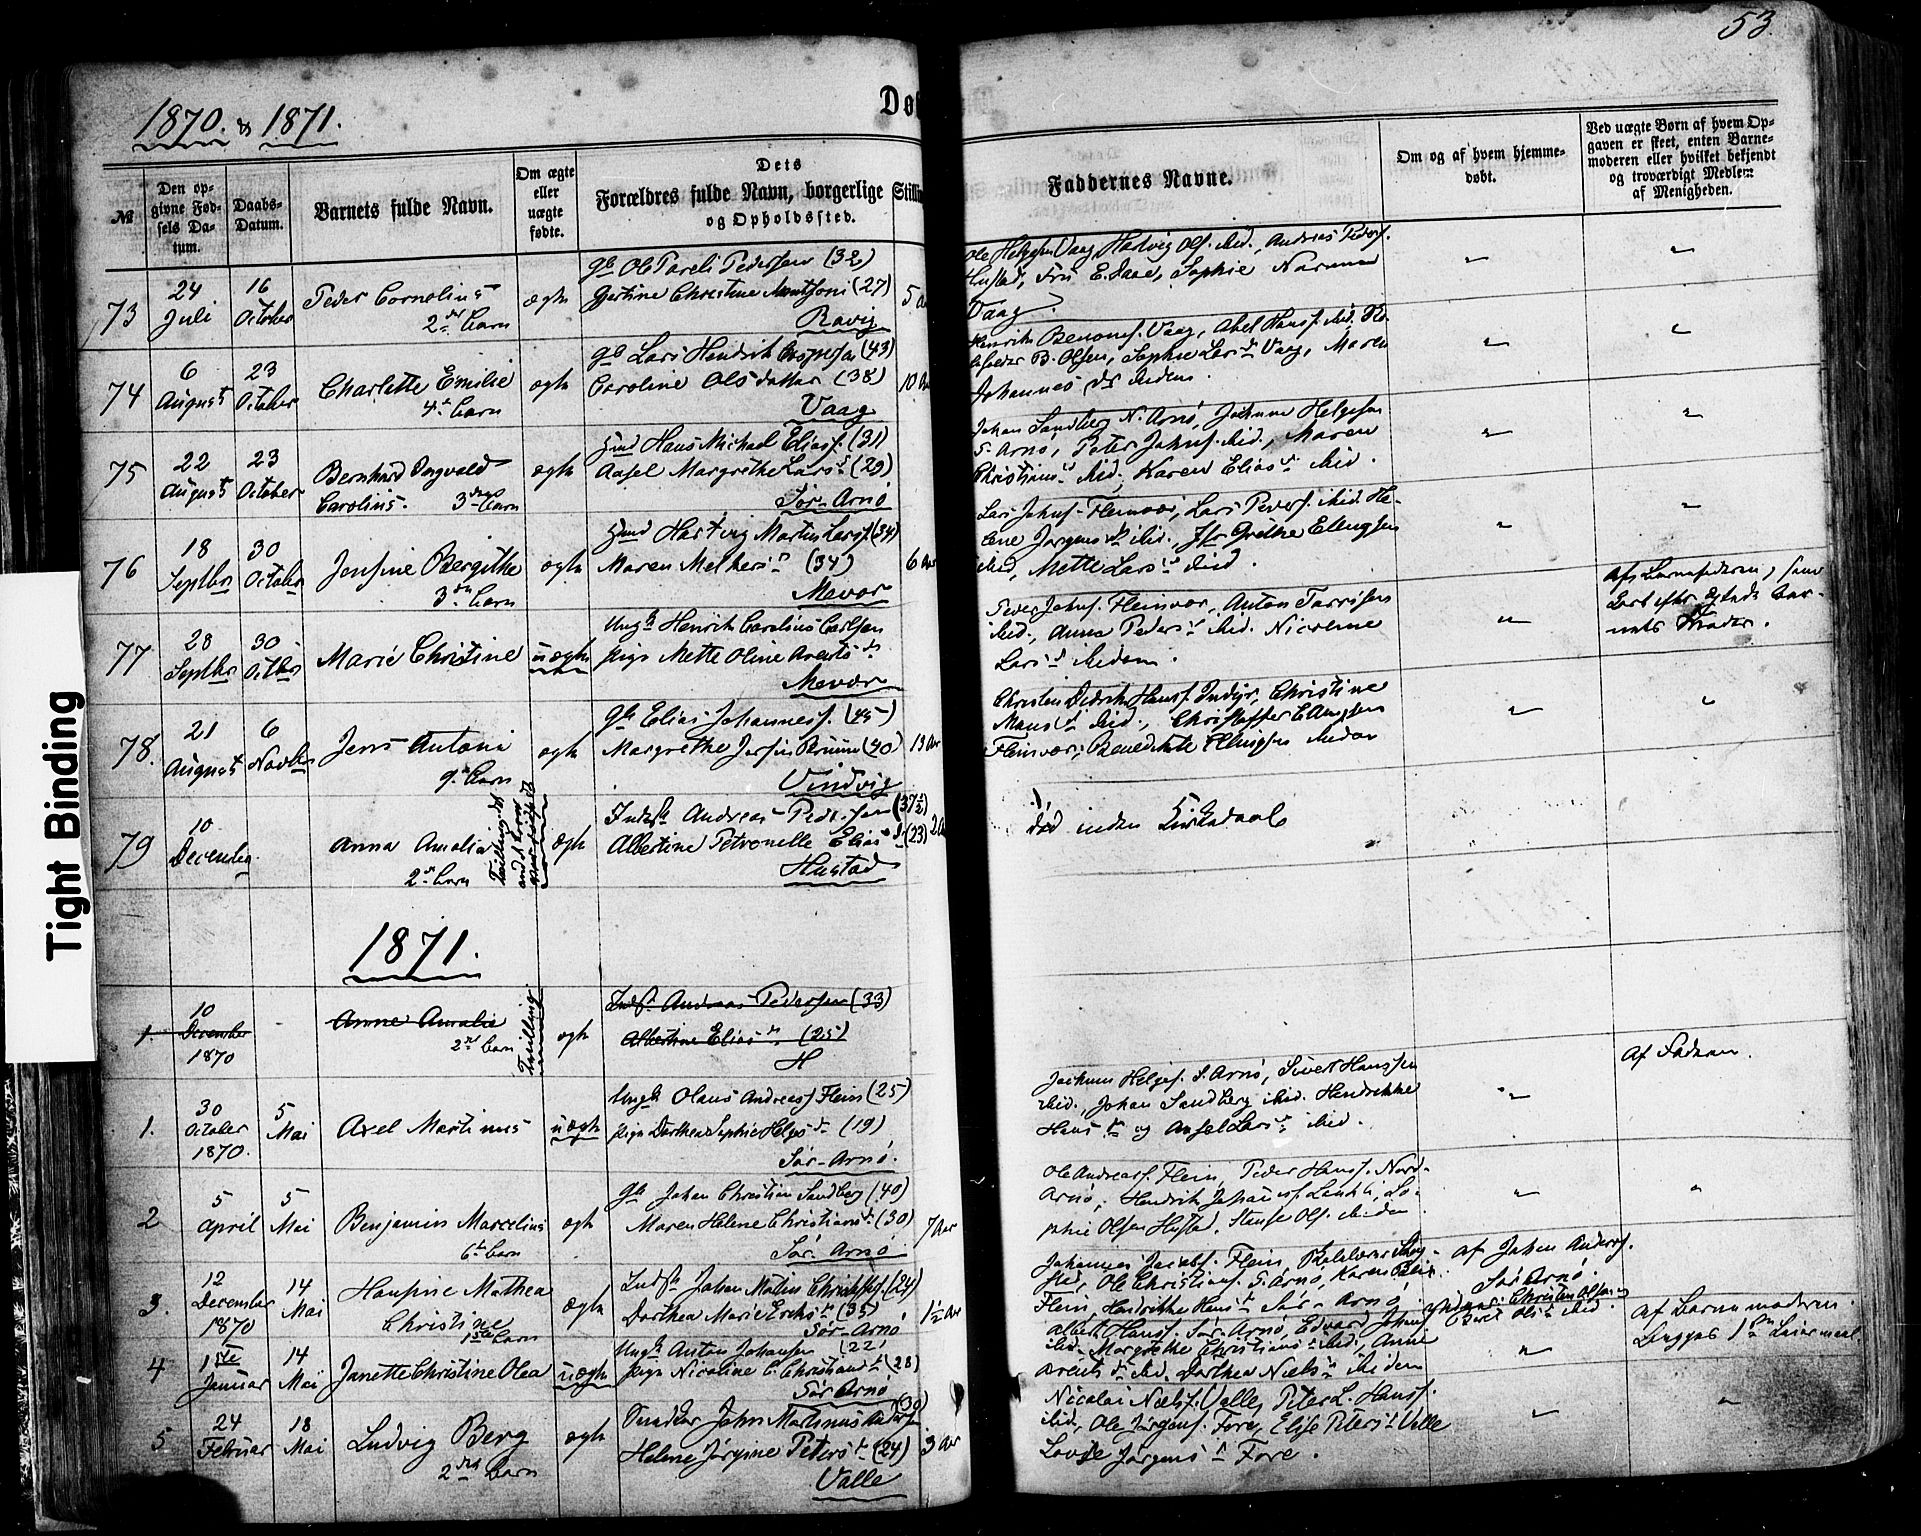 53.
1870. & 1871.
Dø
№
Den op-
givne Fød-
sels Da-
tum.
Daabs-
Datum.
Barnets fulde Navn.
Om ægte
eller
uægte
fødte.
Dets
Forældres fulde Navn, borgerlige Stillin
og Opholdssted.
Faddernes Navne.
Om og af hvem hjemme-
døbt.
Ved uægte Børn af hvem Op-
gaven er skeet, enten Barne-
moderen eller hvilket bekjendt
og troværdigt Medlem
af Menigheden.
73
24
Juli
16
October
Peder Cornelius
2det barn
ægte
Ole Pareli Pedersen (32)
Christine (27)
Ravig
5 Aar
Ole Helgesen Vaag, Hartvig Ols. ibid., Andreas Peders.
Hustad, Fru E. Daae, Sophie
Vaag.
74
6
August
23
October
Charlette Emilie
4de barn
ægte
Lars Hendrik (43)
Caroline Olsdatter (38)
Vaag
10 Aar
Henrik Benons. Vaag, Abel Hans. ibid.
B. Olsen, Sophie Larsd. Vaag, Maren
Johannesdr ibidem.
75
22
August
23
October
Bernhard Ingvald
Carolius. 3die barn
ægte
Hans Michael Elias. (31)
Aasel Margrethe Larsd. (29)
Sør-Arnø
Johan Sandberg N. Arnø, Jochum Helgesen
S. Arnø, Peter Johns. ibid., Maren
Christiansd. ibid., Karen Eliasd. ibid.
76
18
Septbr
30
October
Josfine Bergithe
3die barn
ægte
Hartvig Martin Lars. (34)
Maren Melkersd. (34)
Mevær
6 Aar
Lars Johns. Fleinvær, Lars Peders. ibid. He-
lene Jørgensd. ibid., Jfr Grethe Ellingsen
ibid, Mette Larsd. ibid.
77
28
Septbr
30
Octbr
Marie Christine
uægte
Ungk. Henrik Carolius Carlsen
Pige Mette Oline Arentsd.
Mevær
Peder Johns. Fleinvær, Anton
ibid., Anna Pedersd. ibid. Nicoline
Larsd. ibidem.
Af Barnefaderen, som
nets Moder.
78.
21
August
6
Novbr
Jens Antoni
9de barn
ægte
Elias Johannes. (45)
Margrethe (40)
Vindvig
13 Aar
Christen Didrik Hans. Indyr, Christine
Mansd. ibid., Christoffer Ellingsen
Fleinvær, Benedikte Ellingsen ibidem
79
10
December
Anna Amalia
2det barn
Tvilling
ægte
Indst. Andreas Pedersen (37½)
Albertine Petronelle Eliasd. (23)
Hustad
død inden Kirkedaab
1871.
1.
10
December
1870
Anne Amalie
2det barn
Tvilling
ægte
Indst. Andreas Pedersen (33)
Albertine Eliasd. (25)
H
1.
30
October
1870.
5
Mai
Axel Martinus
uægte
Ungk. Olaus Andreas. Flein (25)
Pige Dorthea Sophie Helgesd. (19)
Sør-Arnø.
Jochum Helges. S. Arnø, Sivert Hanssen
ibid., Johan Sandberg ibid. Hendrikke
Hansd. og Aasel Larsd. ibid.
Af Faderen.
2
5
April
5
Mai
Benjamin Marcelius
6te barn
ægte
Johan Christian Sandberg (40)
Maren Helene Christiansd. (30)
Sør-Arnø
7 Aar
Ole Andreas. Flein, Peder Hans. Nord-
Arnø, Hendrik Johans. So-
phie Olsen Hustad, Ols. ibidem
3.
12
December
1870
14
Mai
Hansine Mathea
Christine
1ste barn
ægte
Indst. Johan Christophs. (24)
Dorthea Marie Eriksd. (35)
Sør-Arnø
1½ Aar
Johannes Jacobs. Flein,
Ole Christians. S. Arnø, Karen
Flein, Hendrikke Hansd. Sør-Arnø
af Johan Anders.
Sør Arnø
4
1ste
Januar
14
Mai
Janette Christine Olea
uægte
Ungk. Anton Johansen (22)
Pige Nicoline C. Christiansd. (28)
Sør Arnø
Albert Hans. Sør-Arnø, Edvard Johns.
ibid. Margrethe Christiansd. ibid., Anne
Arentsd. ibid. Dorthea Nielsd. ibidem
Af Barnemoderen.
5
24
Februar
18
Mai
Ludvig Berg
2det barn
ægte
John Martinus (30)
Helene Jørgine Petersd. (24)
Valle
3 Aar
Nicolai Niels. Valle, Peter L. Hans.
ibid, Ole Jørgens. Fore, Elise Petersd. Valle
Lovise Jørgensd. Fore.
Tight Binding